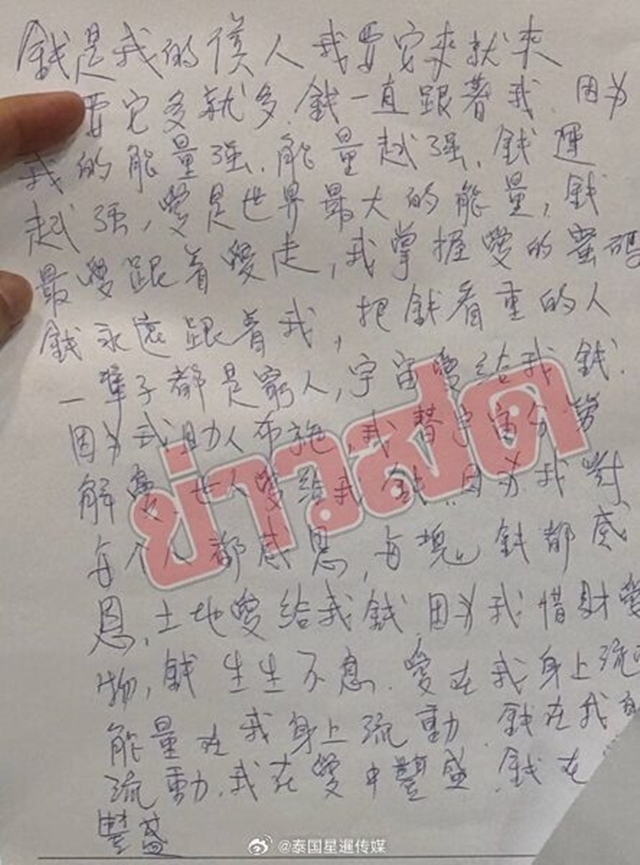 錢是我的僕人我要它來就來
要它多就多.錢一直跟著我.因为
我的能量强.能量越强.錢運
越强,愛是世界最大的能量,錢
最愛跟着愛走,我掌握愛的蜜码
錢永遠跟着我,把錢看重的人
一輩子都是窮人,宇宙愛给我錢.
因为我助人布施,我替宇宙分勞
解憂.世人愛给我錢.因为我對
每个人都感恩,每塊錢都感
恩,土地愛给我錢.因为我惜財愛
物,錢生生不息.愛在我身上流
能量在我身上流動.錢在我身
流動.我在愛中豐盛.錢在
豐盛
ข่าวสด
@泰国星暹传媒